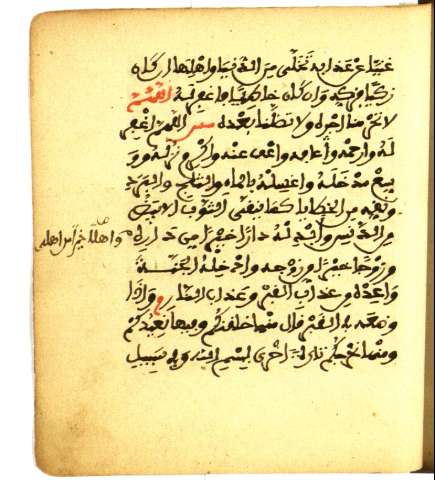 غنيا عن عذابه تخلى من الدنيا واهلها ان كان
زكيا فزكه وان كان خاطيا فاغفر له اللهم
لا تحرمنا اجره ولا تضلنا بعده اللهم اغفر
له وارحمه وعافه واعف عنه واكرم نزله ووسع
مدخله واغسله بالماء والثلج والبرد
ونقه من الخطايا كما ينقى الثوب الابيض
من الدنس وابدله دارا خيرا من داره
واهلا خيرا من اهله
وزوجا خيرا من زوجه وادخله الجنة
واعذه من عذاب القبر وعذاب النار واذا
وضعه في القبر قال منها خلقنكم وفيها نعيدكم
ومنها نخرجكم تارة اخرى بسم الله وفي سبيل